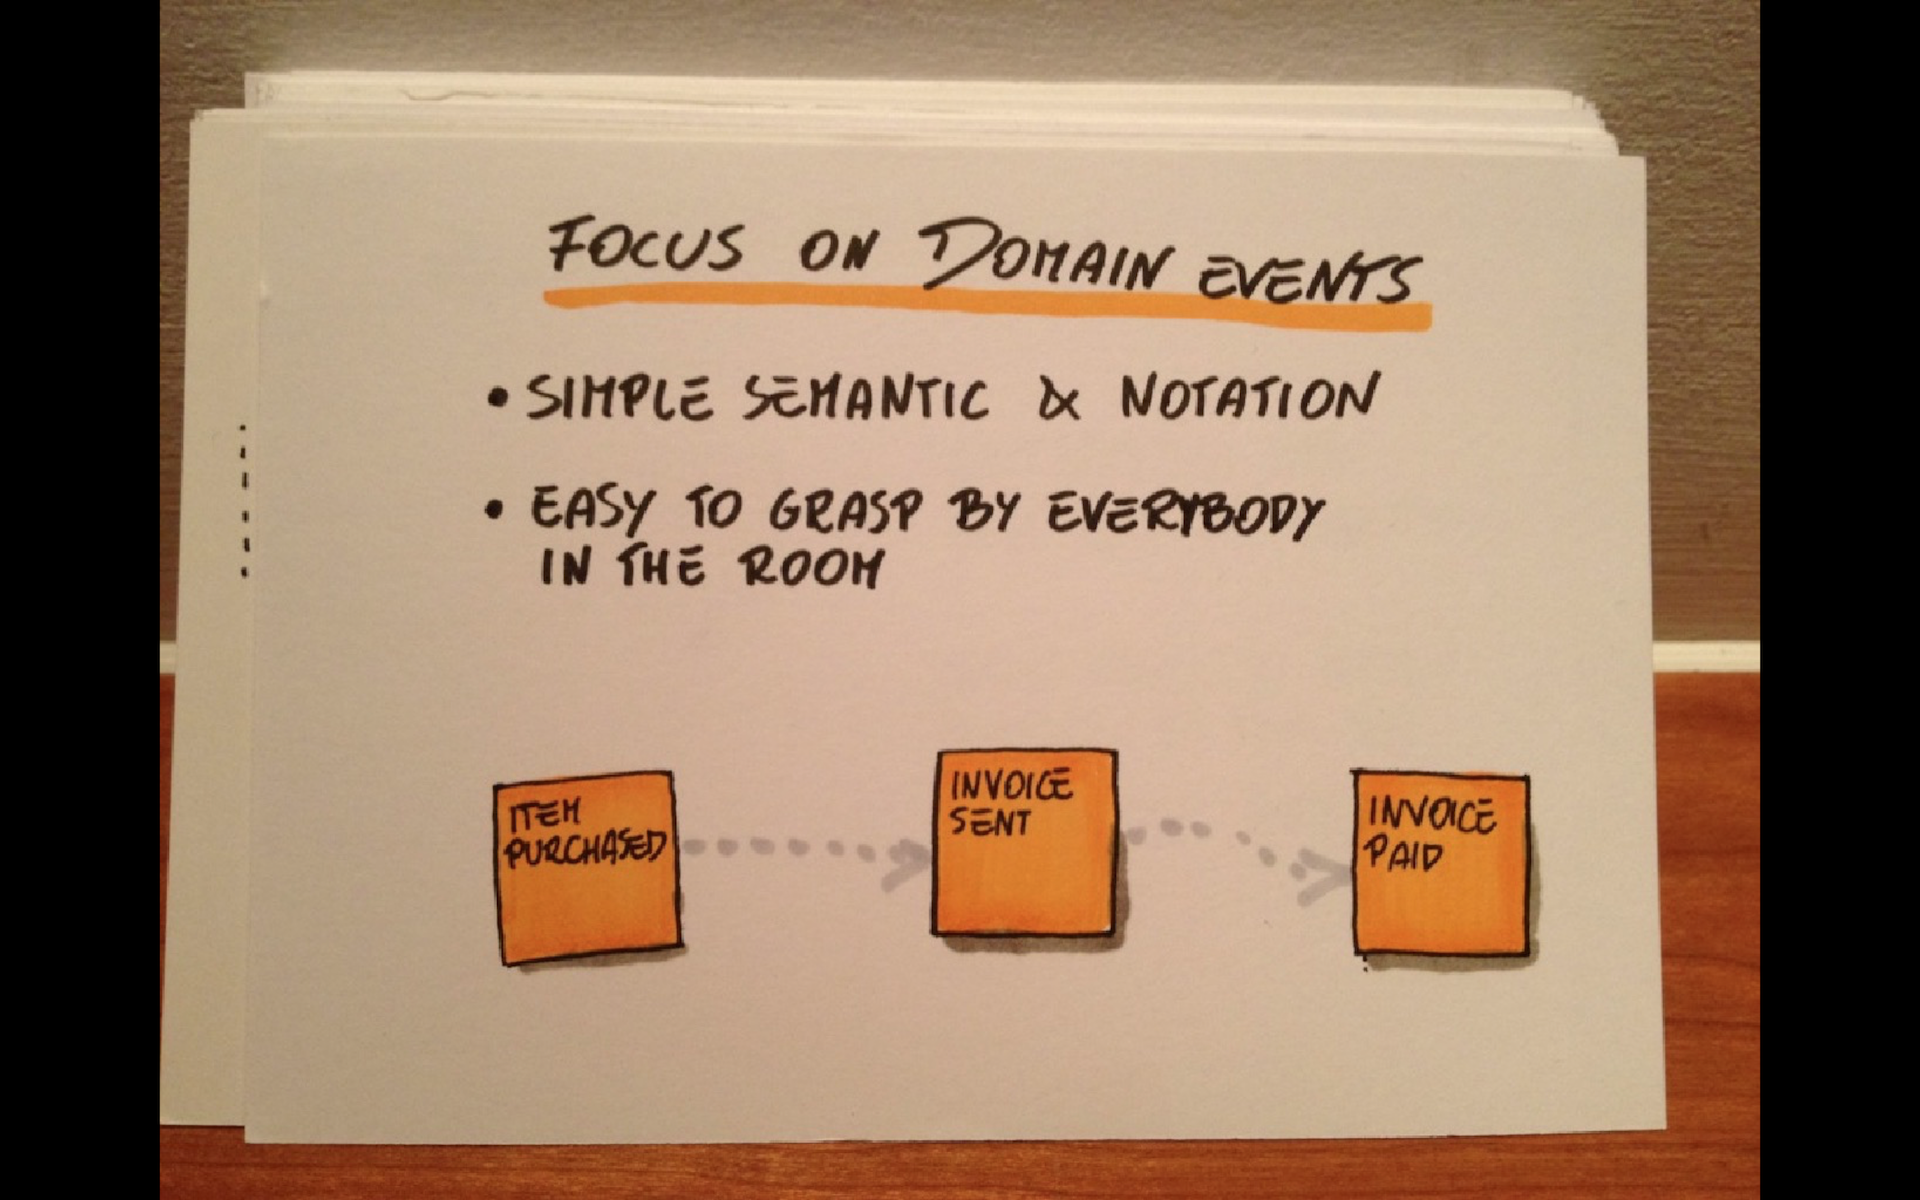 FOCUS ON DOMAIN EVENTS
• SIMPLE SEMANTIC & NOTATION
• EASY TO GRASP BY EVERYBODY
IN THE ROOM
ITEM
PURCHASED
INVOICE
SENT
INVOICE
PAID